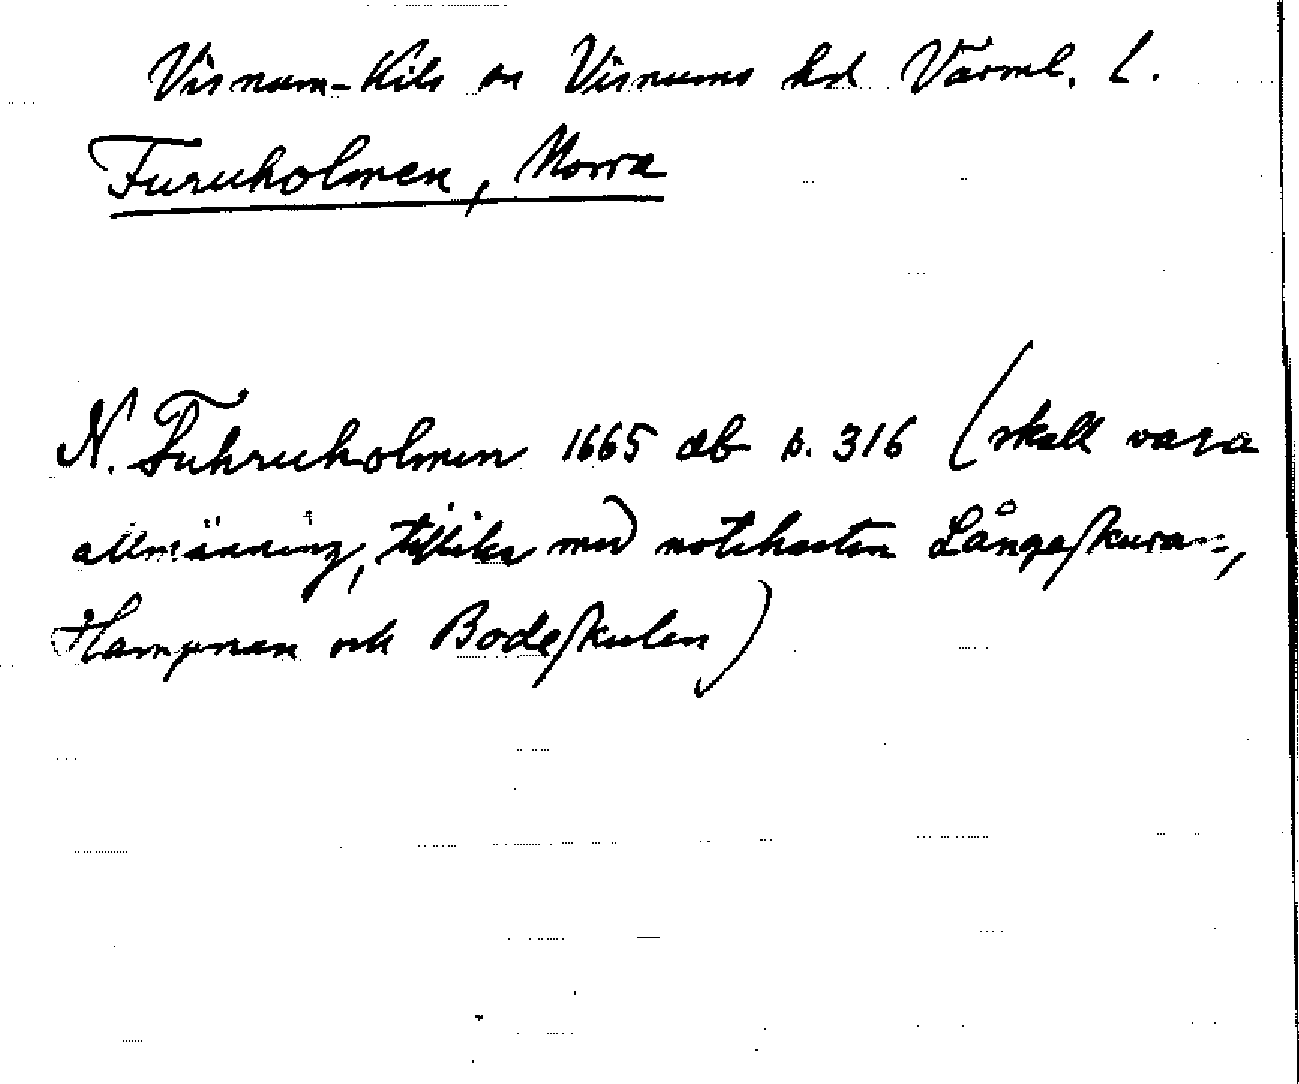 Visnum-Kils sn Visnums hd Värml. L.
Furuholmen, Norra
N. Fuhruholmen 1665 db s. 316 (skall vara
allmänning, tillika med notekasten Långeskura=,
Hampnan och Bodeskulen)